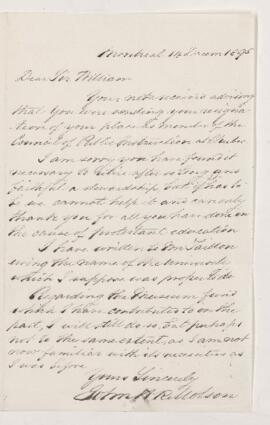 Montreal 14 Decem 1895
Dear Sir William
Your note received advising
that you were sending your resigna
tion of your place as member of the
Council of Public Instruction at Quebec
I am sorry you have found it
necessary to retire after so long and
faithful a stewardship but if has to
be we cannot help it and can only
thank you for all you have done in
the cause of protestant education
I have written to Mr
using the name of the
which I suppose was proper to do.
Regarding the Museum fund
which I have contributed to in the
past, I will still do so, but perhaps
not to the same extent, as I am not
now familiar with its necessities as
I was before
Yours Sincerely
John H R Molson